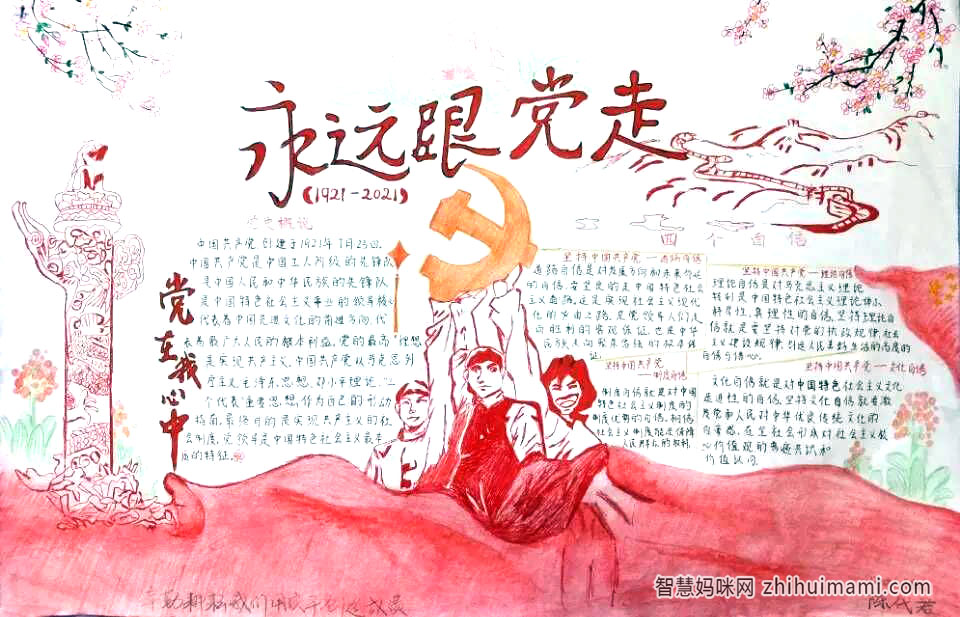 永远跟党走
(1921-2021)
党史概论
中国共产党创建于1921年7月23日.
中国共产党是中国工人阶级的先锋队
是中国人民和中华民族的先锋队
是中国特色社会主义事业的领导核心
代表着中国先进文化的前进方向,代
表着最广大人民的根本利益,党的最高理想
是实现共产主义,中国共产党以马克思列
宁主义,毛泽东思想,邓小平理论,"三
个代表"重要思想,作为自己的行动
指南,最终目的是实现共产主义的社
会制度,党领导是中国特色社会主义最本
质的特征.
党在我心中
四个自信
坚持中国共产党——道路自信
道路自信是对发展方向和未来命运
的自信,
主义道路,这是实现社会主义现代
化的必由之路,是党领导人们走
向胜利的客观保证,也是中华
证.
坚持中国共产党
——制度自信
制度自信就是对中国
特色社会主义制度的
制度优势的自信,相信
坚持中国共产党——理论自信
理论自信是对马克思主义理论
特别是中国特色社会主义理论体系
科学性,真理性的自信,坚持理论自
信就是要坚持对党的执政规律,社会
坚持中国共产党——文化自信
文化自信就是对中国特色社会主义文化
先进性的自信,坚持文化自信就要激
发党和人民对中华优秀传统文化的
心价值观的普遍共识和
价值认同.
智慧妈咪网 zhihuimami.com